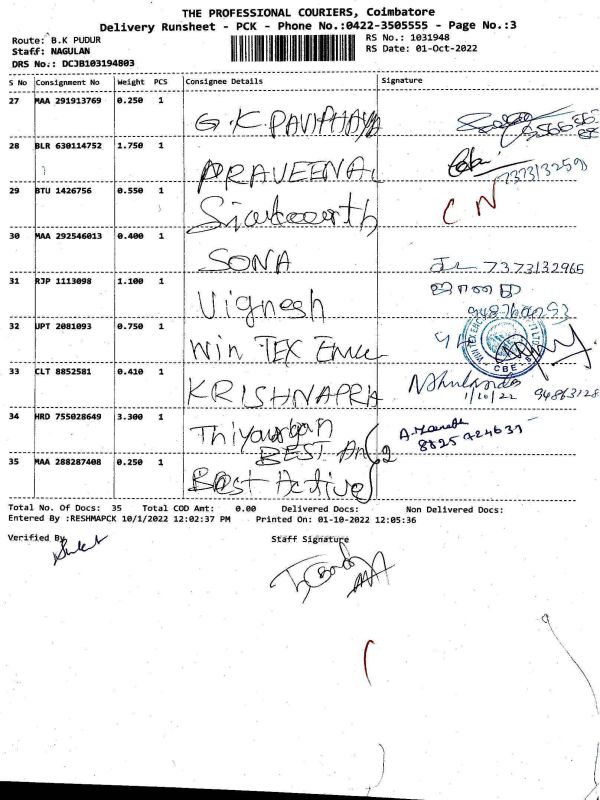 THE PROFESSIONAL COURIERS, Coimbatore
Delivery Runsheet - PCK - Phone No.:0422-3505555 - Page No.:3
Route: B.K PUDUR RS No.: 1031948
Staff: NAGULAN RS Date: 01-Oct-2022
DRS No.: DCJB103194803
S No Consignment No Weight PCS Consignee Details Signature
27 MAA 291913769 0.250 1 G.K.PAVIPHAYA
28 BLR 630114752 1.750 1 PRAVEENA
29 BTU 1426756 0.550 1 CN
30 MAA 292546013 0.400 1 SONA 7373132965
31 RJP 1113098 1.100 1 Vignesh
32 UPT 2081093 0.750 1 Win TEX
CBE
33 CLT 8852581 0.410 1 KRISHNAPRIA
1/10/22
34 HRD 755028649 3.300 1
BEST
35 MAA 288287408 0.250 1 Best Active
Total No. Of Docs: 35 Total COD Amt: 0.00 Delivered Docs: Non Delivered Docs:
Entered By :RESHMAPCK 10/1/2022 12:02:37 PM Printed On: 01-10-2022 12:05:36
Verified By Staff Signature